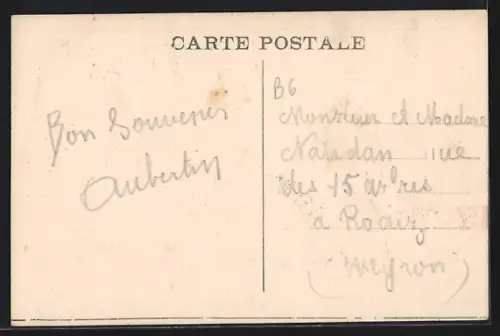 CARTE POSTALE
B6
Bon Souvenir
Aubertin
Monsieur et Madame
Naudan rue
des 15 arbres
à Rodez
(Aveyron)